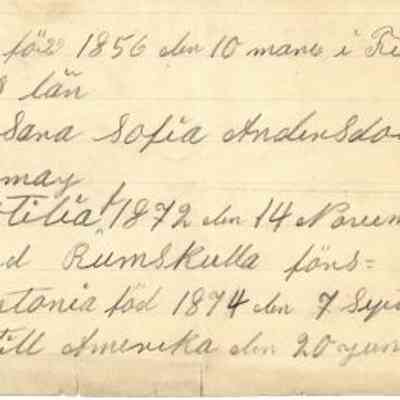 föd 1856 den 10 mars i
län
Sara Sofia Andersdo
may
tilia 1872 den 14 Novem
d Rumskulla förs=
tonia föd 1874 den 7
till Amerika den 20 yun